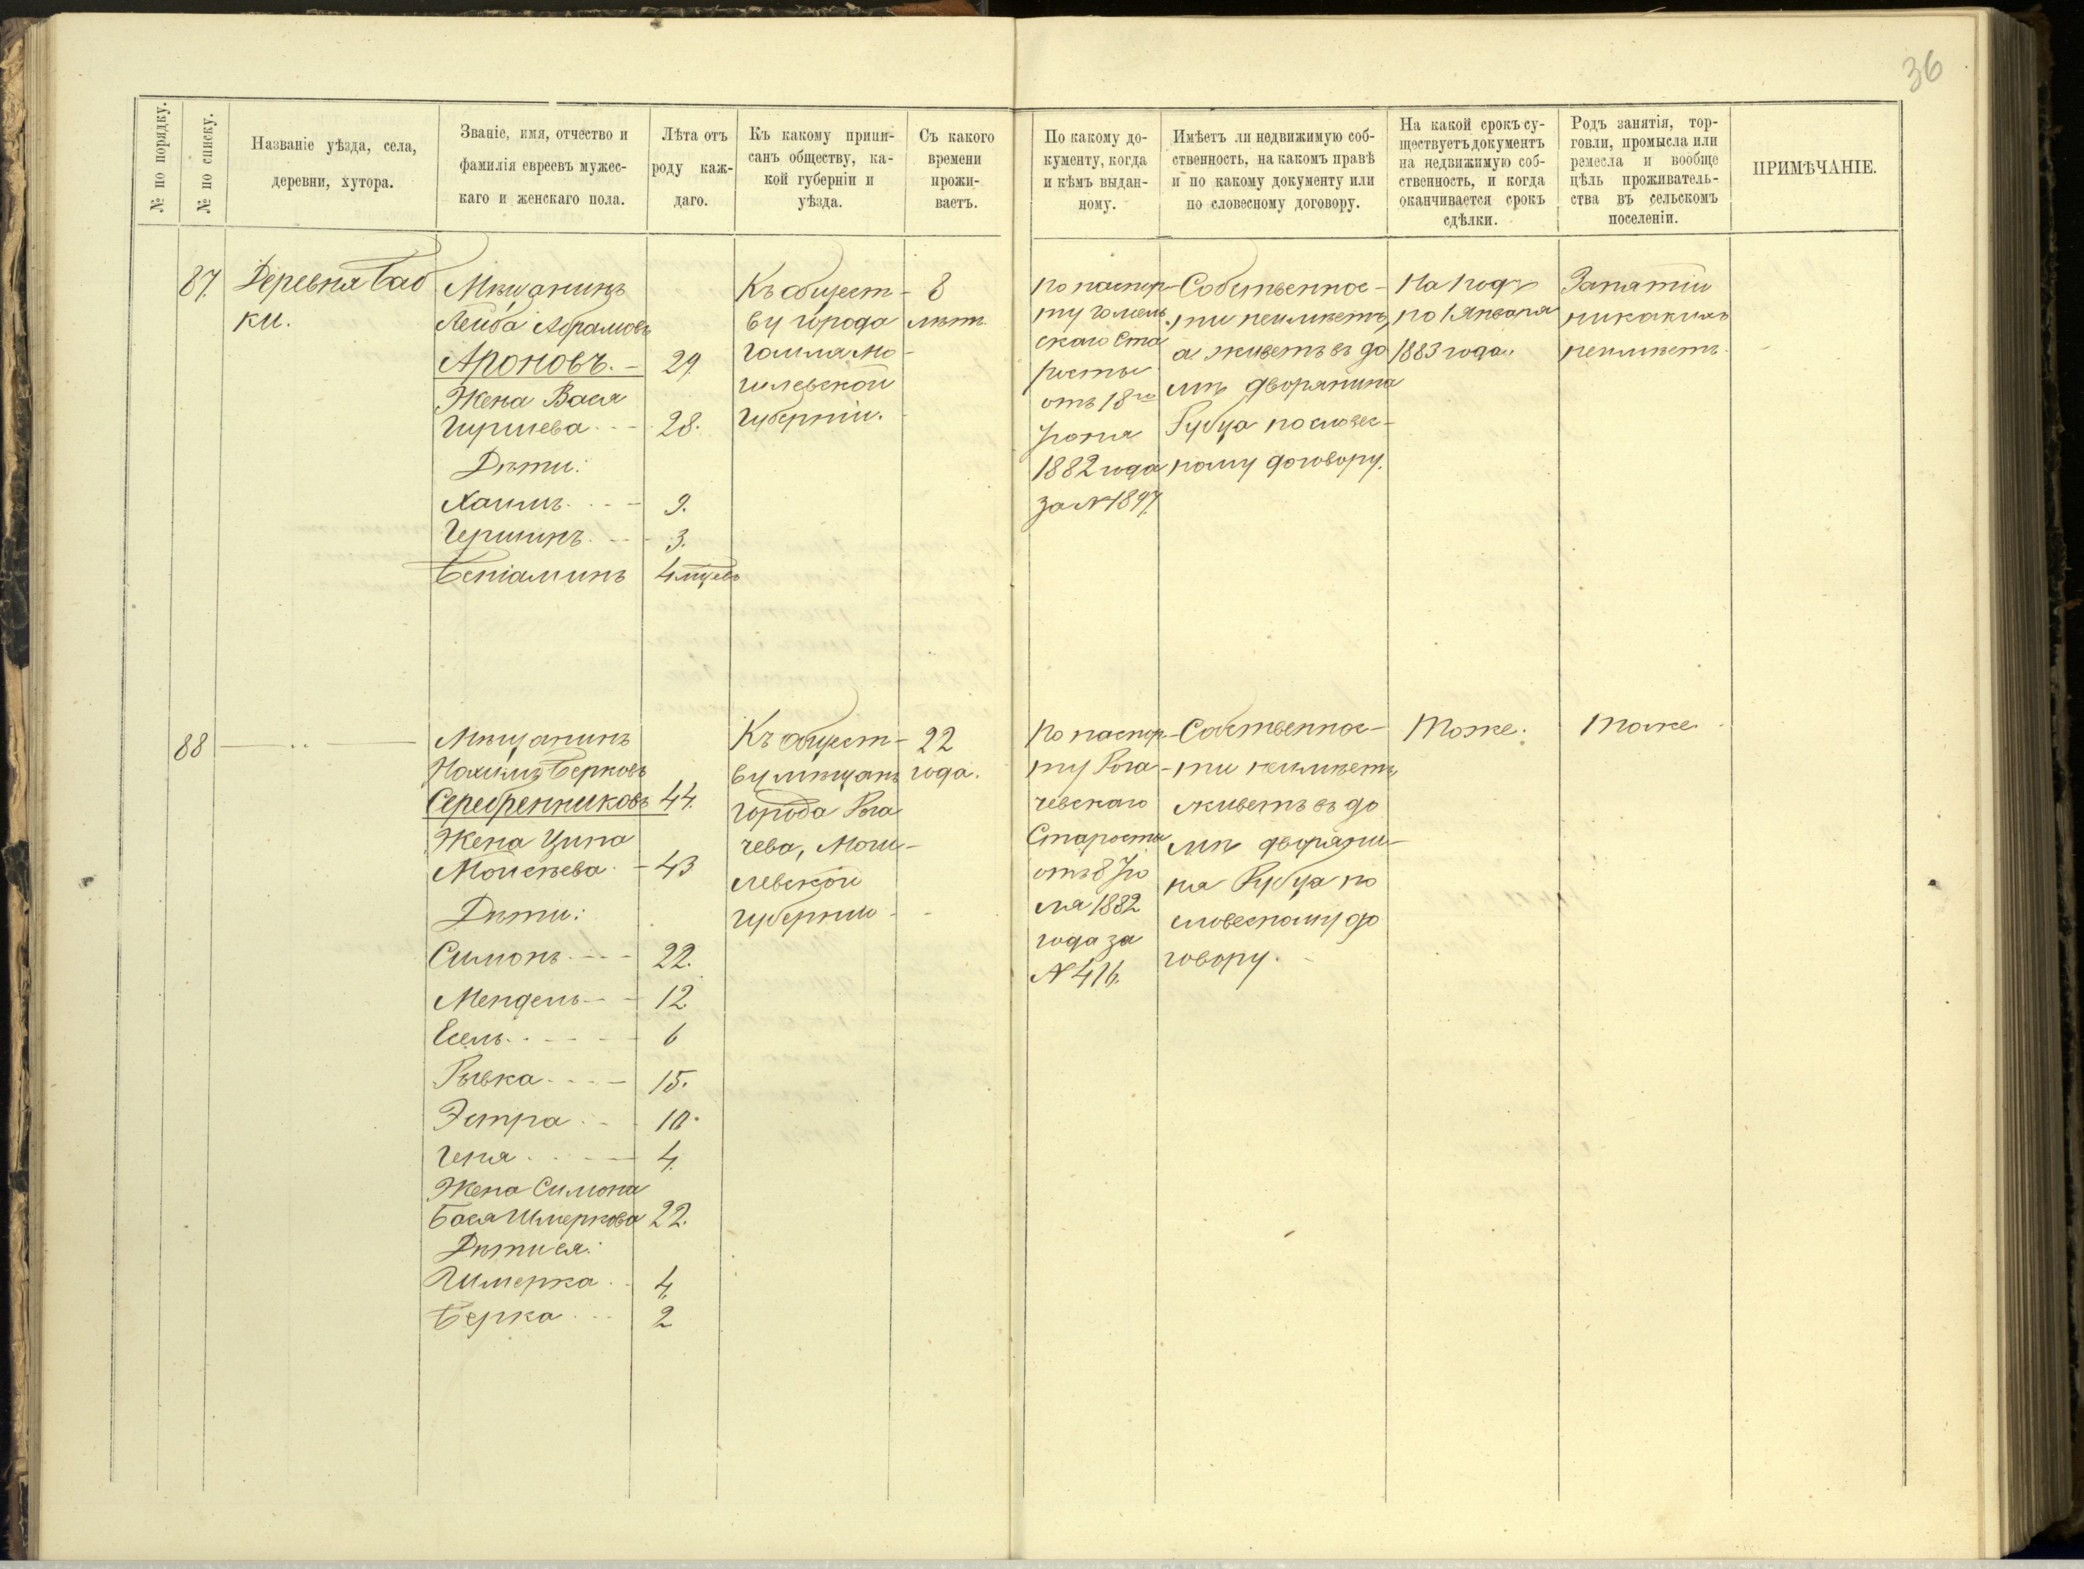 36
№ по порядку.
№ по списку.
Названіе уѣзда, села,
деревни, хутора.
Званіе, имя, отчество и
фамилія евреевъ мужес-
каго и женскаго пола.
Лѣта отъ
роду каж-
даго.
Къ какому припи-
санъ обществу, ка-
кой губерніи и
уѣзда.
Съ какого
времени
прожи-
ваетъ.
По какому до-
кументу, когда
и кѣмъ выдан-
ному.
Имѣетъ ли недвижимую соб-
ственность, на какомъ правѣ
и по какому документу или
по словесному договору.
На какой срокъ су-
ществуетъ документъ
на недвижимую соб-
ственность, и когда
оканчивается срокъ
сдѣлки.
Родъ занятія, тор-
говли, промысла или
ремесла и вообще
цѣль проживатель-
ства въ сельском
поселеніи.
ПРИМѢЧАНІЕ.
87.
Деревня Баб
ки.
Мѣщанинъ
Лейба Абрамовъ
Ароновъ. — 29
Жена Вася
Гиршева - - - 28.
Дѣти:
Хаимъ - - - 9.
Гершинъ - - - 3.
Беніаминъ 4 мѣсѣв
Къ общест-
ву города
Гомля Мо-
гилевской
Губерніи.
8
лѣтъ.
По паспор-
ту Гомель
скаго Ста
росты
отъ 18го
Іюня
1882 года
за № 1897
Собственнос-
ти неимѣетъ,
а живетъ въ до
мѣ дворянина
Рубца по словес-
ному договору.
На годъ
по 1 Января
1883 года.
Занятіи
никакихъ
неимѣетъ.
88
— " —
Мѣщанинъ
Нохимъ Берковъ
Серебренниковъ 44.
Жена Ципа
Моисѣева - 43
Дѣти:
Симонъ - - - 22.
Мендель - - 12.
Есель - - - - 6
Рывка - - - 15.
Эстра - - - 10.
Геня - - - 4.
Жена Симона
Бася Шмеркова 22.
Дѣти ея:
Шмерка - - 4.
Берка - - - 2
Къ общест-
ву мѣщанъ
города Рога
чева, Моги-
левской
Губерніи
22
года.
По паспор-
ту Рога-
чевскаго
Старосты
отъ 8 Ію
ля 1882
года за
№ 416.
Собственнос-
ти неимѣетъ,
живетъ въ до
мѣ дворяни-
на Рубца по
словесному до
говору.
Тоже.
Тоже